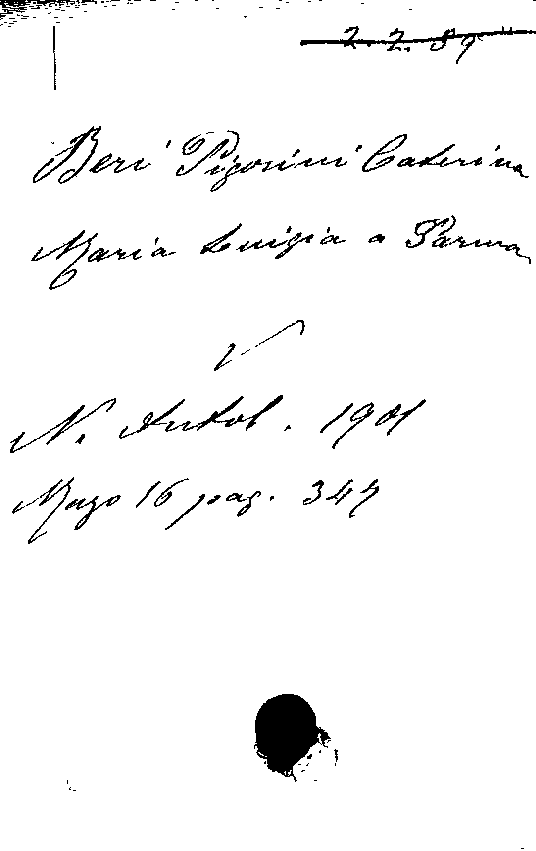 2. 2. 89
Beri Pigorini Caterina
Maria Luigia a Parma
N. Antol. 1901
Mago 16 pag. 347